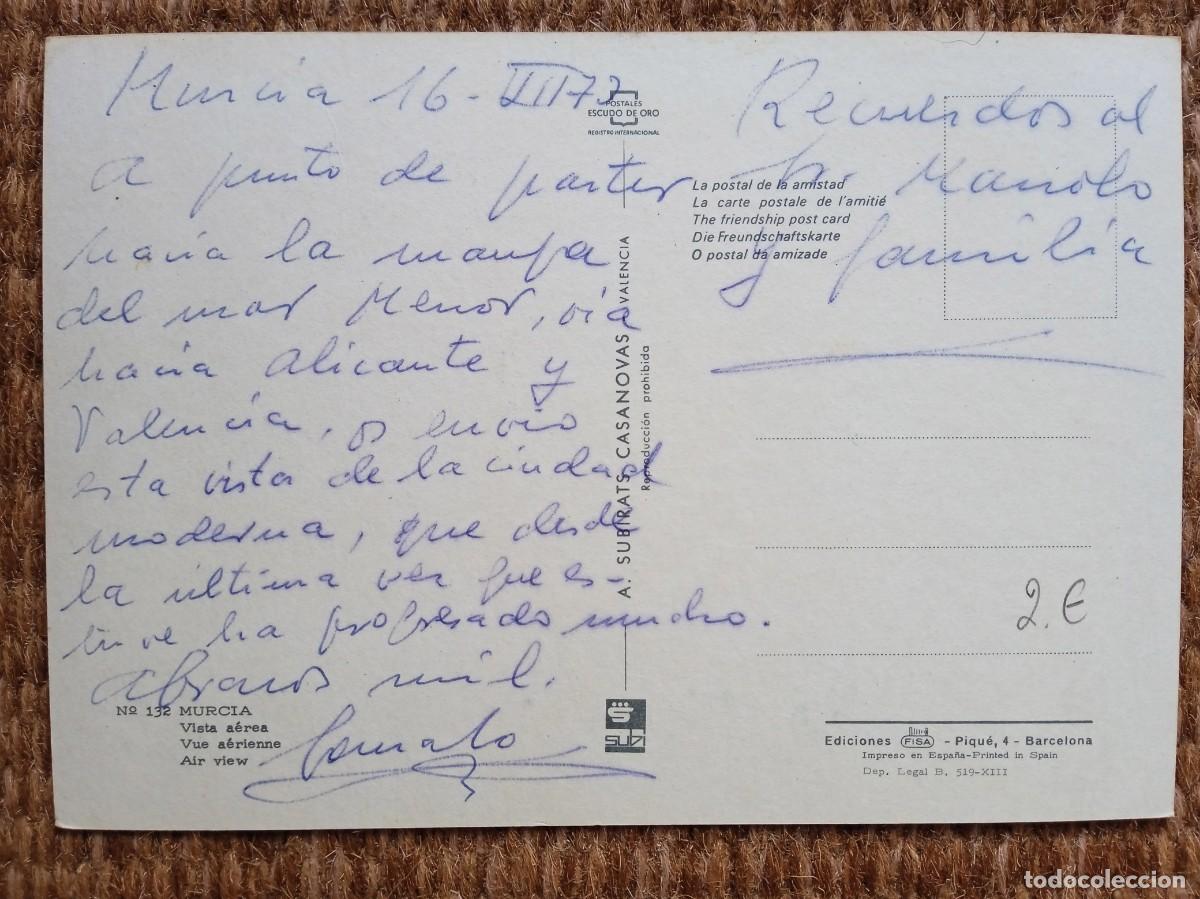 Murcia 16-VIII73
a punto de partir
hacia la manga
del mar Menor, via
hacia Alicante y
Valencia, os envio
esta vista de la ciudad
moderna, que desde
la ultima vez que es-
tuve ha progresado mucho.
Abrazos mil.
Gonzalo
Recuerdos al
Sr. Manolo
y familia
POSTALES
ESCUDO DE ORO
REGISTRO INTERNACIONAL
La postal de la amistad
La carte postale de l'amitié
The friendship post card
Die Freundschaftskarte
O postal da amizade
A. SUBIRATS CASANOVAS VALENCIA
Reproducción prohibida
2.€
Nº 132 MURCIA
Vista aérea
Vue aérienne
Air view
subi
Ediciones FISA - Piqué, 4 - Barcelona
Impreso en España-Printed in Spain
Dep. Legal B. 519-XIII
todocoleccion